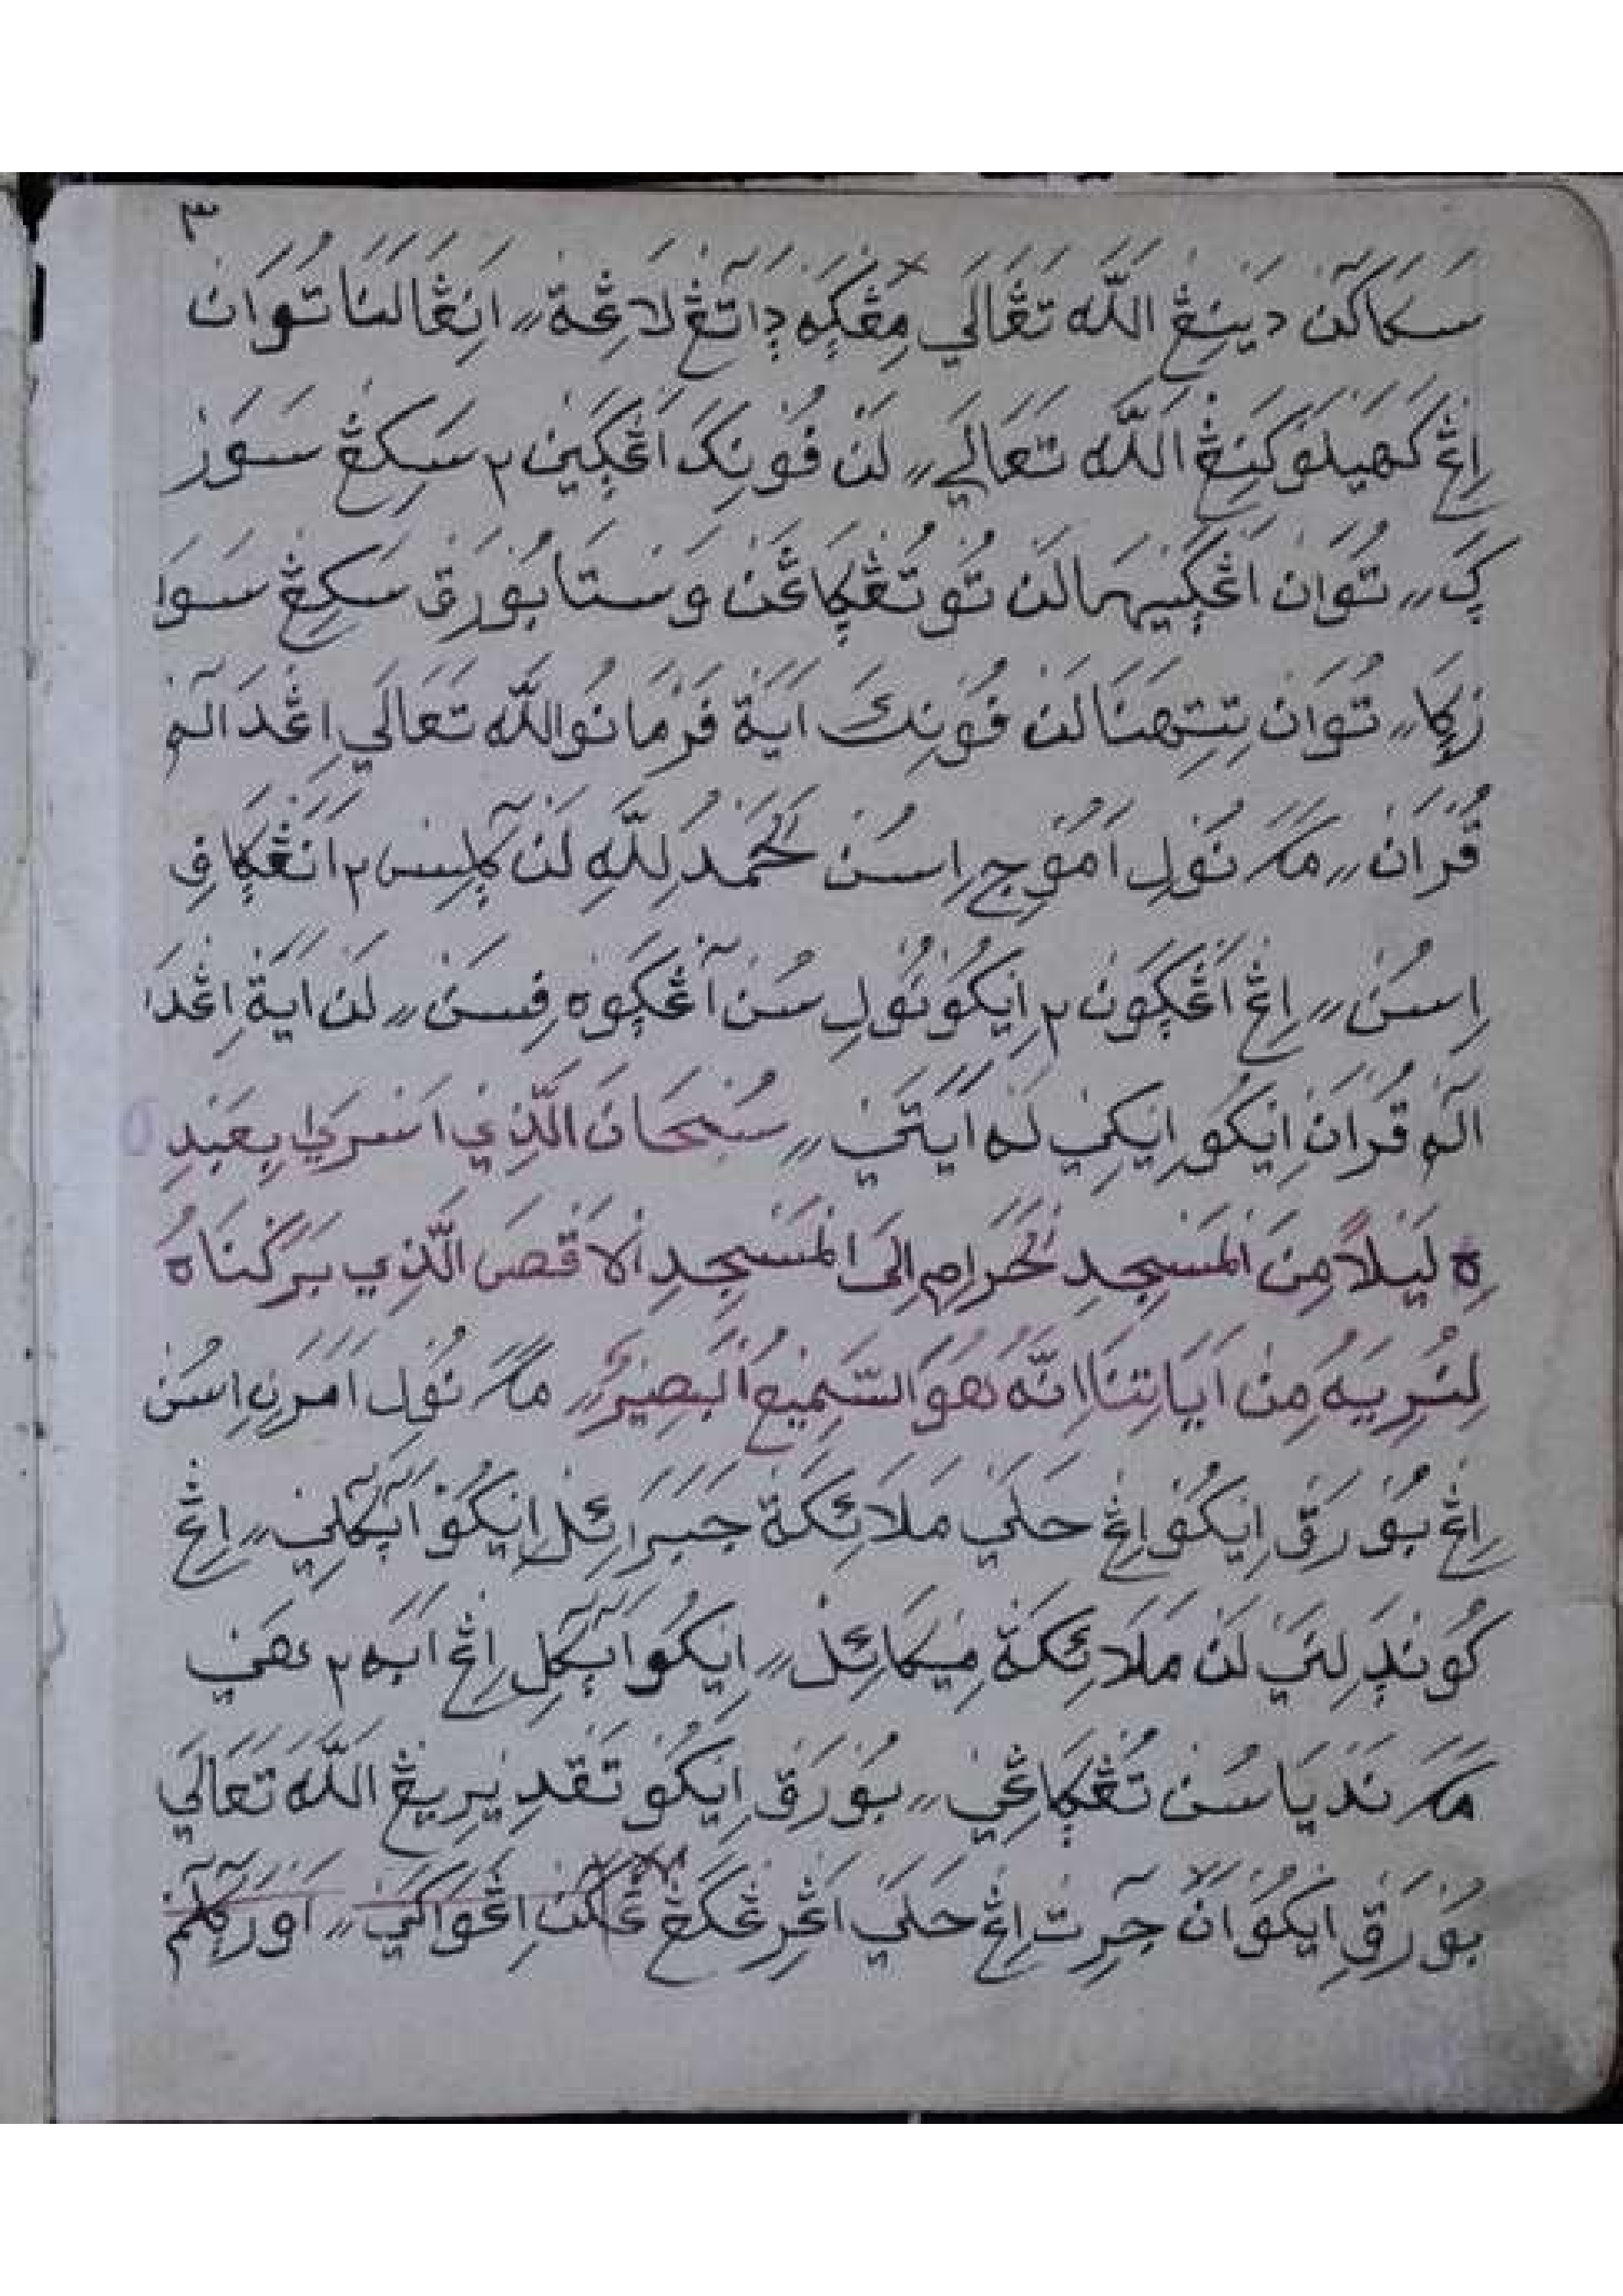 ٣
سَكَاكٓن دَيْنِيْڠ اَللّٰه تَعَالَي مِڠْڮَه دَاتٓڠْ لَاڠِة ࣤ اَنِڠَالنَا تُوَانْ
اِڠْ كَهَيْلُوكَنِڠْ اَللّٰه تَعَالَي ࣤ لَنْ فُوْنِكَ اَڠْڮَيْنِ ٢ سَكِڠْ سَوَرْ
ڮَ ࣤ تُوَانْ اَڠْڮَيْهَا لَنْ تُوْ تُڠْڮَاڠَنْ وَسْتَا بُوْرَقْ سَكِڠْ سَوَا
رْڮَا ࣤ تُوَانْ تِتِهَنَا لَنْ فُوْنِكَ اَيَةْ فَرْمَانُو اَللّٰه تَعَالَي اِڠْدَالٓمْ
قُرْاَنْ ࣤ مَكَ نُوْلِ اَمُوْجِ اِسُنْ اَلْحَمْدُ لِلّٰهِ لَنْ اَنْڠْڮَافِ
اِسُنْ ࣤ اِڠْ اَڠْڮَوْنْ ٢ اِيْكُوْ نُوْلِ سُنْ آڠْڮَوْه فِسَنْ ࣤ لَنْ اَيَةْ اِڠْدَا
لٓمْ قُرْاَنْ اِيْكُوْ اِيْكِيْ لَهْ اَيَتَيْ ࣤ سُبْحَانَ الَّذِيْ اَسْرٰى بِعَبْدِ
هِ لَيْلًا مِنَ الْمَسْجِدِ لْحَرَامِ اِلَى الْمَسْجِدِ الْاَقْصَ الَّذِيْ بَرَكْنَاهُ
لِنُرِيَهُ مِنْ اَيَاتِنَا اِنَّهُ هُوَ السَّمِيْعُ الْبَصِيْرُ ࣤ مَكَ نُوْلِ اَمَرَنِ اِسُنْ
اِڠْ بُوْرَقْ اِيْكُوْ اِڠْ حَلَيْ مَلَائِكَةْ جَبَرَائِلْ اِيْكُوْ ࣤ اِڠْ
لَنْ مَلَائِكَةْ مِيْكَائِلْ ࣤ اِيْكُوْ اِڠْ
مَكَ نَدْيَا سُنْ تُڠْڮَاڠِيْ ࣤ بُوْرَقْ اِيْكُوْ تَقْدِيْرِيْڠْ اَللّٰه تَعَالَي
بُوْرَقْ اِيْكُوْ اِڠْ حَلَيْ